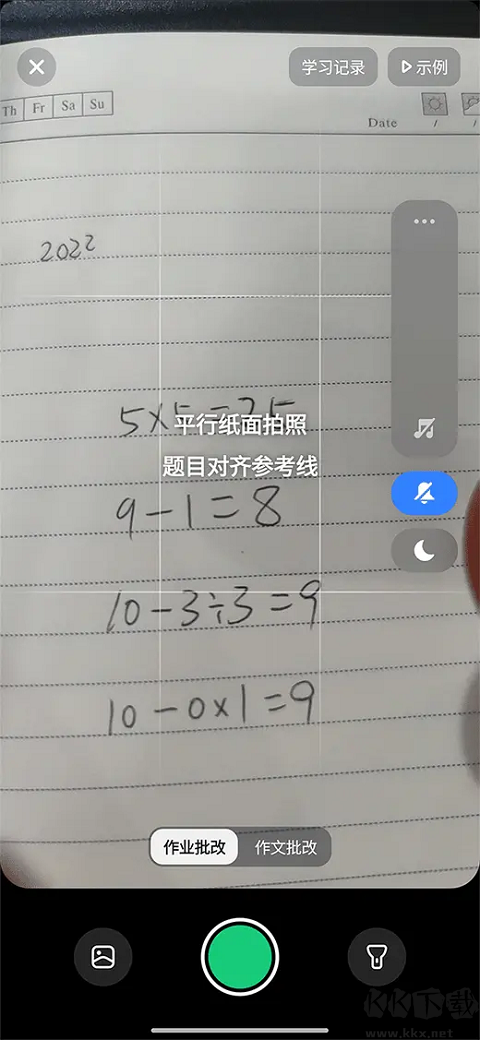 学习记录
示例
Th Fr Sa Su
Date / /
2022
平行纸面拍照
题目对齐参考线
9-1=8
10-3÷3=9
10-0×1=9
作业批改 作文批改
KK下载
www.kkx.net